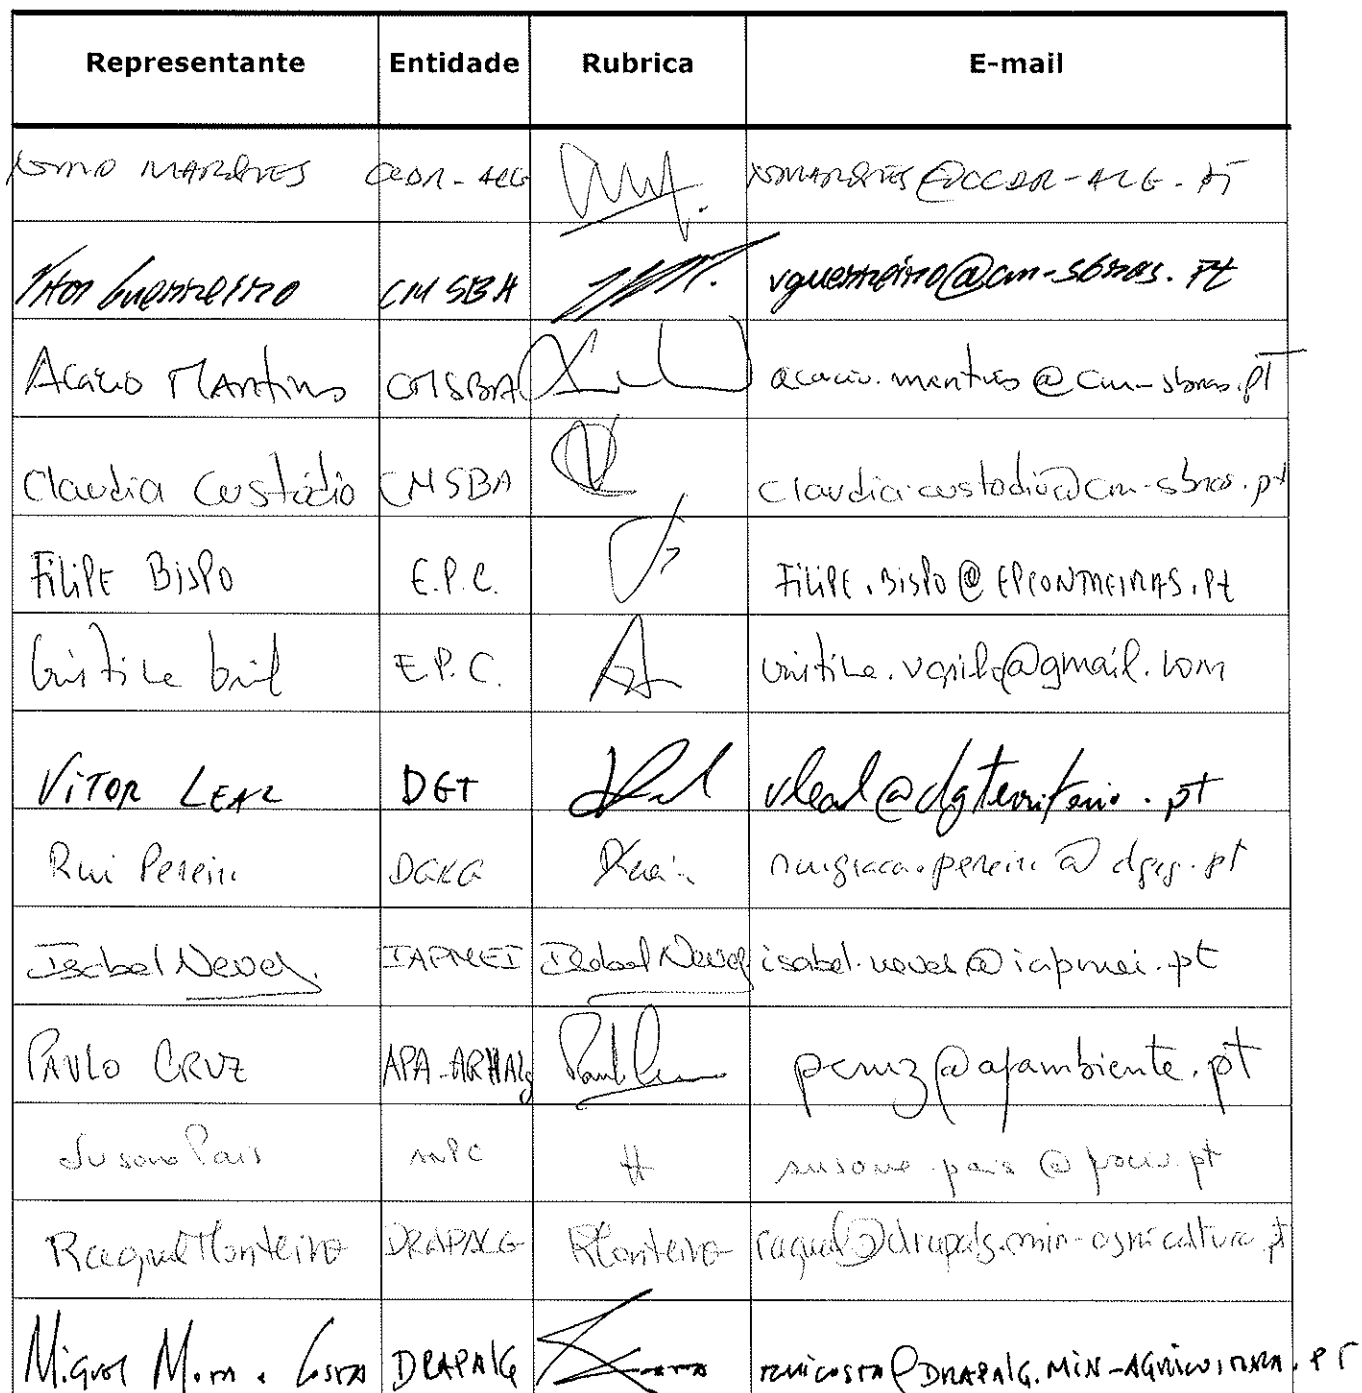 Representante Entidade Rubrica E-mail
NUNO MARQUES CCDR-ALG NUMARQUES@CCDR-ALG.PT
Vitor Guerreiro CMSBA vguerreiro@cm-sbras.pt
Acácio Martins CMSBA acacio.martins@cm-sbras.pt
Claudia Custódio CMSBA claudia.custodio@cm-sbras.pt
FILIPE BISPO E.P.C. FILIPE.BISPO@EPCONTREIRAS.Pt
E.P.C. @gmail.com
VITOR LEAL DGT vleal@dgterritorio.pt
Rui Pereira DGEG pereira@dgeg.pt
Isabel Neves IAPMEI Isabel Neves isabel.neves@iapmei.pt
PAULO CRUZ APA-ARHAlg pcruz@apambiente.pt
Susana Pais ANPC susana.pais@prociv.pt
Raquel Monteiro DRAPALG RMonteiro raquel@drapalg.min-agricultura.pt
Miguel Costa DRAPALG @DRAPALG.MIN-AGRICULTURA.PT